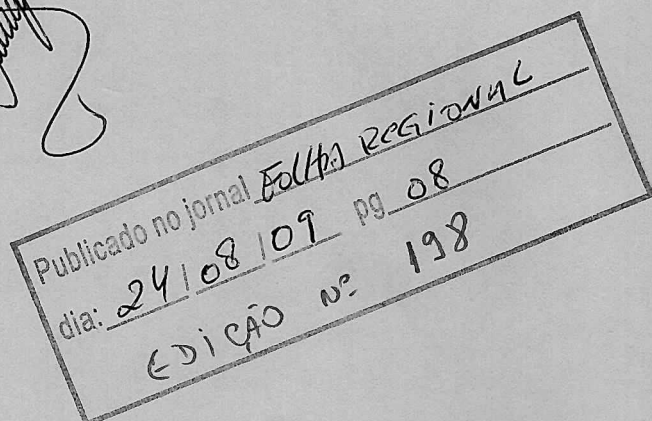 Publicado no jornal Folha REGIONAL
dia: 24/08/09 pg 08
EDIÇÃO Nº 198